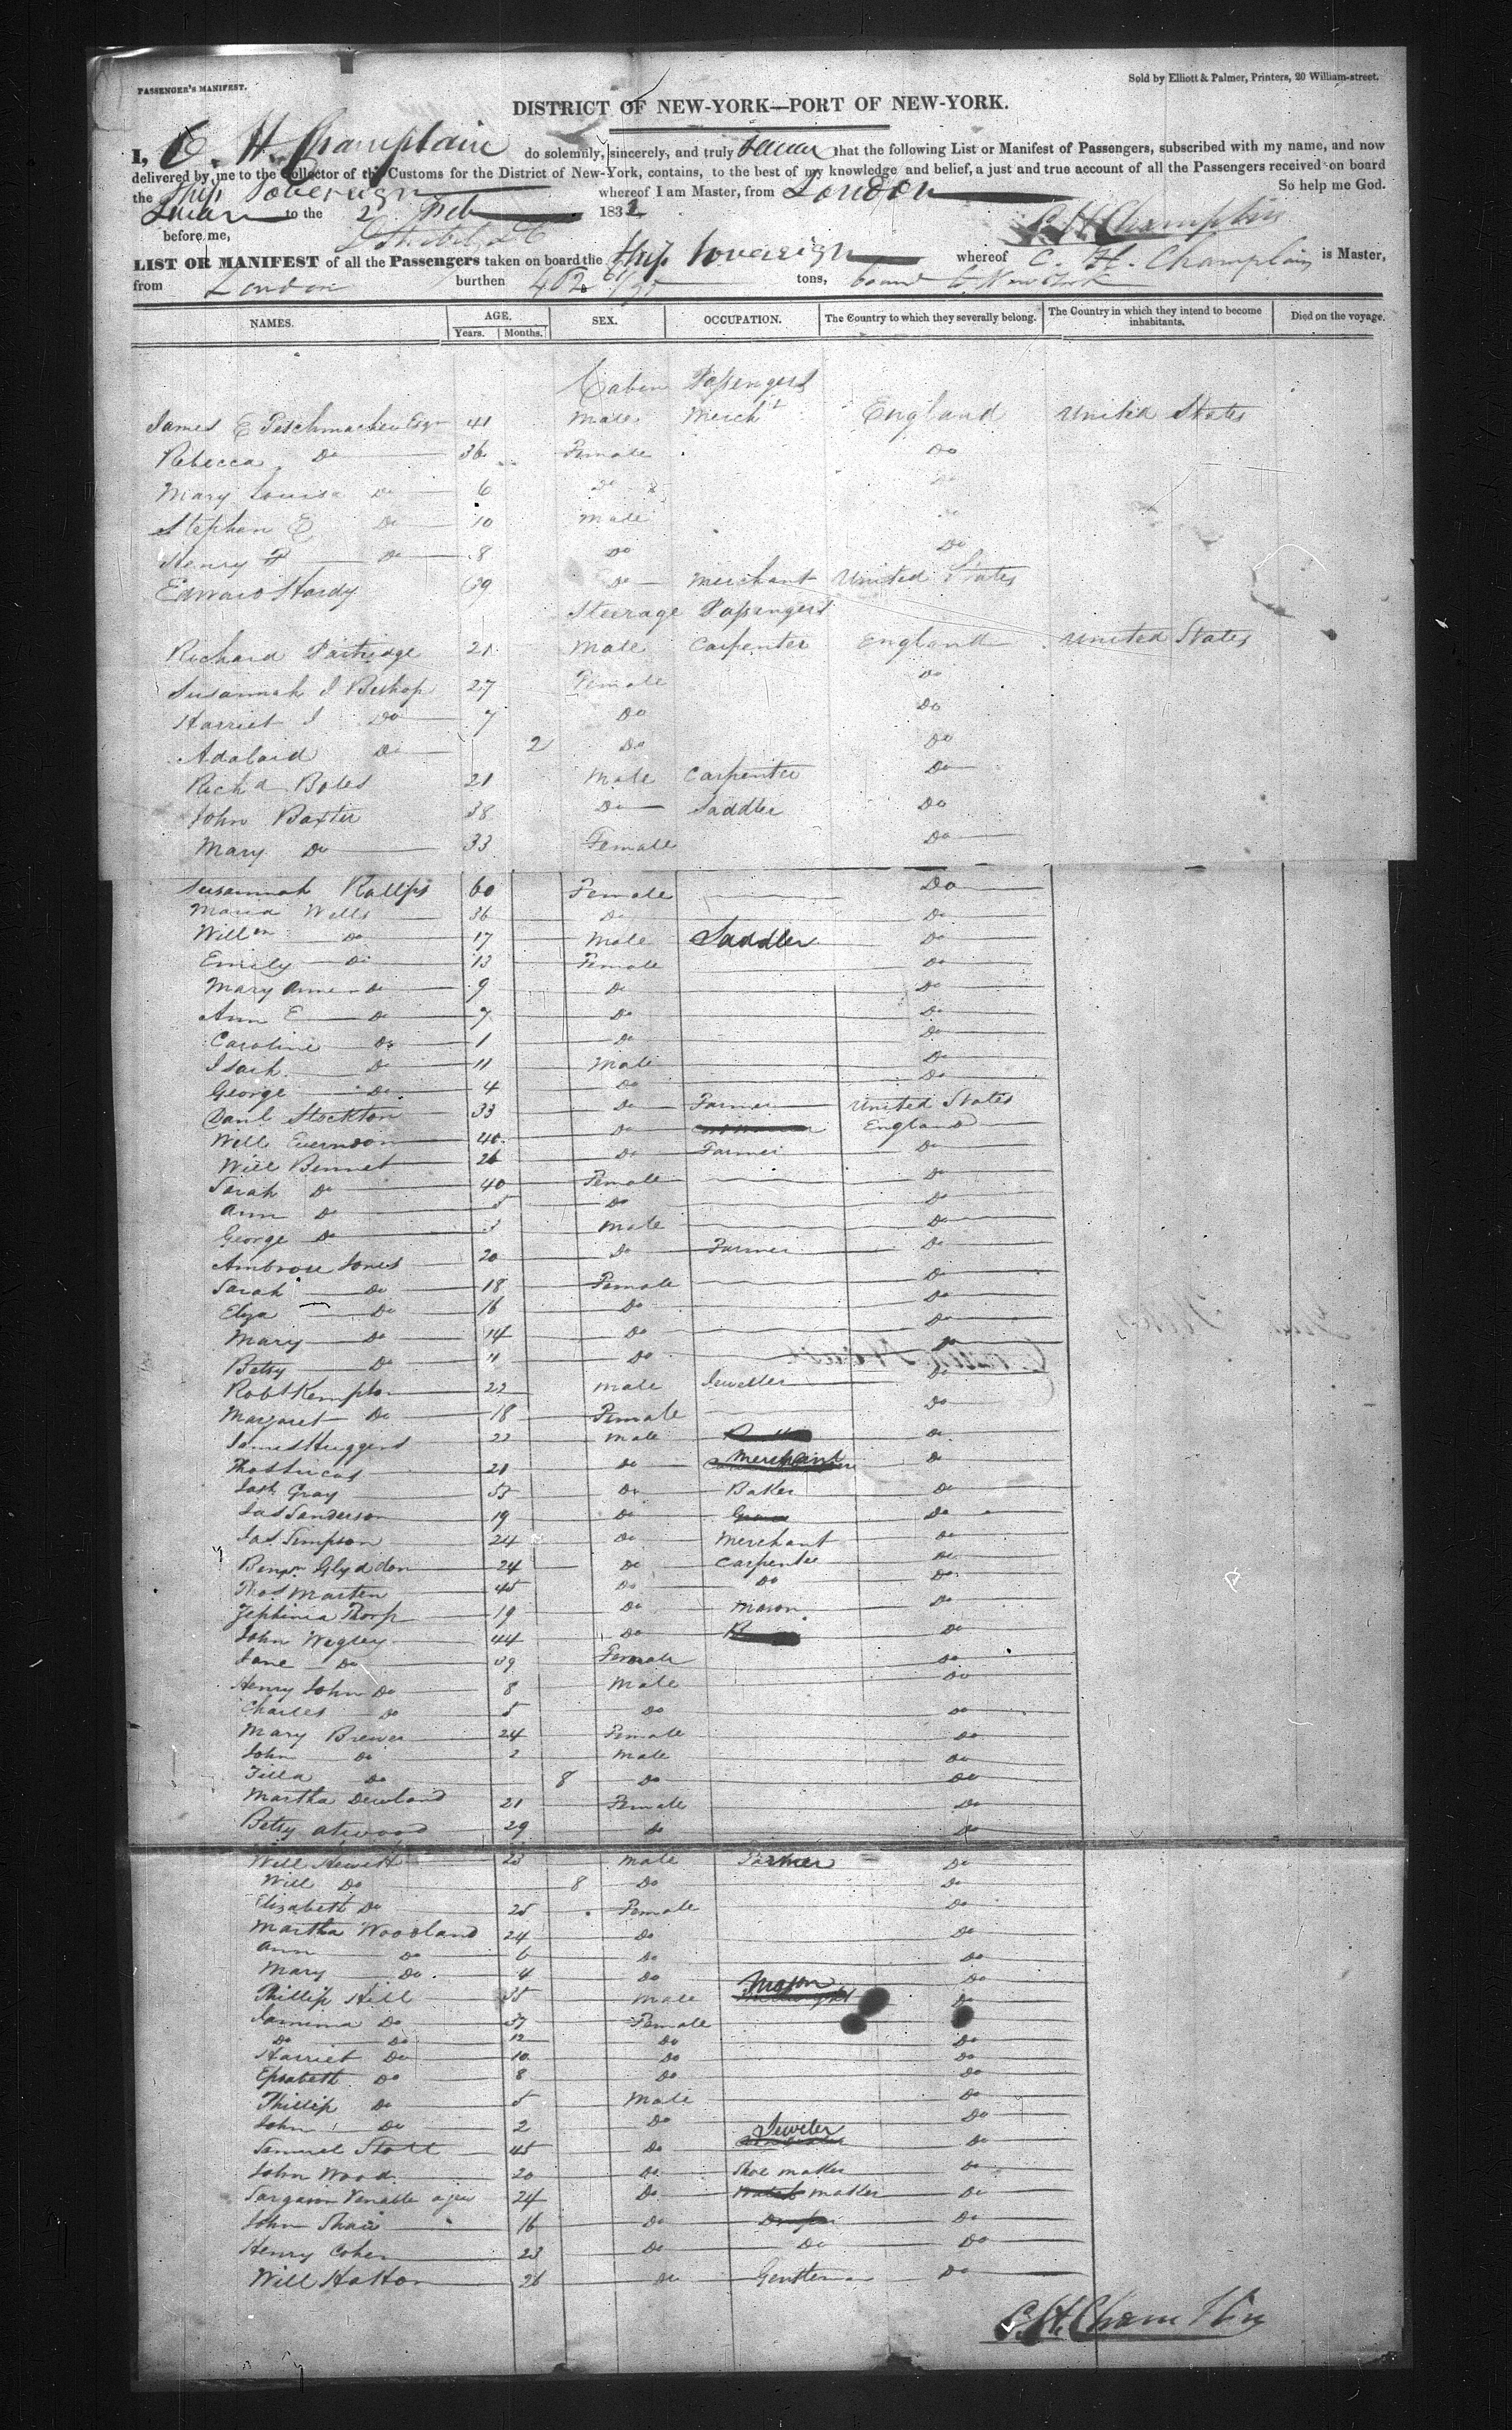 PASSENGER'S MANIFEST.
Sold by Elliott & Palmer, Printers, 20 William-street.
DISTRICT OF NEW-YORK—PORT OF NEW-YORK.
I, C. H. Champlain do solemnly, sincerely, and truly Swear that the following List or Manifest of Passengers, subscribed with my name, and now
delivered by me to the Collector of the Customs for the District of New-York, contains, to the best of my knowledge and belief, a just and true account of all the Passengers received on board
the Ship Sovereign whereof I am Master, from London So help me God.
Swear to the 2 Feb 183
before me, C H Champlin
LIST OR MANIFEST of all the Passengers taken on board the Ship Sovereign whereof C. H. Champlain is Master,
from London burthen 462 tons, bound to New York
NAMES. AGE. SEX. OCCUPATION. The Country to which they severally belong. The Country in which they intend to become inhabitants. Died on the voyage.
Years. Months.
Cabin Passengers
James E Teschmacher Esqr 41 Male Mercht England United States
Rebecca Do 36 Female Do
Mary Louisa Do 6 Do Do
Stephen E Do 10 Male
Henry Do 8 Do Do
Edward Hardy 69 Do Merchant United States
Steerage Passengers
Richard Partridge 21 Male Carpenter England United States
Susannah J Bishop 27 Female Do
Harriet J Do 7 Do Do
Adalaid Do 2 Do Do
Richd Boles 21 Male Carpenter Do
John Baxter 38 Do Saddler Do
Mary Do 33 Female Do
Susannah 60 Female Do
Maria Wells 36 Do Do
Willm Do 17 Male Saddler Do
Emily Do 13 Female Do
Mary Anne Do 9 Do Do
Ann E Do 7 Do Do
Caroline Do 1 Do Do
Isack Do 11 Male Do
George Do 4 Do Do
Danl Stockton 33 Do Farmer United States
Will Everndon 40 Do England
Will Bennet 26 Do Farmer Do
Sarah Do 40 Female Do
Ann Do 5 Do Do
George Do 3 Male Do
Ambrose Jones 20 Do Farmer Do
Sarah Do 18 Female Do
Elza Do 16 Do Do
Mary Do 14 Do Do
Betsy Do 11 Do Do
Robt Kempton 22 Male Jeweller Do
Margaret Do 18 Female Do
James Huggens 22 Male Do
Thos Lucas 21 Do Merchant Do
Josh Gray 55 Do Baker Do
Jas Sanderson 19 Do Do
Jas Simpson 24 Do Merchant Do
Benjn Glyddon 24 Do Carpenter Do
Thos Marten 45 Do Do Do
Zephinia Thorp 19 Do Mason Do
John Wegley 44 Do Do
Jane Do 39 Female Do
Henry John Do 8 Male Do
Charles Do 5 Do Do
Mary Brewer 24 Female Do
John Do 2 Male Do
Do 8 Do Do
Martha Dewland 21 Female Do
Betsy Atwood 29 Do Do
Will Hewett 23 Male Farmer Do
Will Do 8 Do Do
Elizabeth Do 25 Female Do
Martha Woodland 24 Do Do
Ann Do 6 Do Do
Mary Do 4 Do Do
Phillip Hill 35 Male Mason Do
Jamima Do 37 Female Do
Do Do 12 Do Do
Harriet Do 10 Do Do
Do 8 Do Do
Phillip Do 5 Male Do
John Do 2 Do Do
Samuel Stott 45 Do Jeweler Do
John Wood 20 Do Shoe maker Do
Venable 24 Do Watch maker Do
John Shaw 16 Do Do
Henry Cohen 23 Do Do Do
Will Hatton 26 Do Gentleman Do
C. H. Champlin